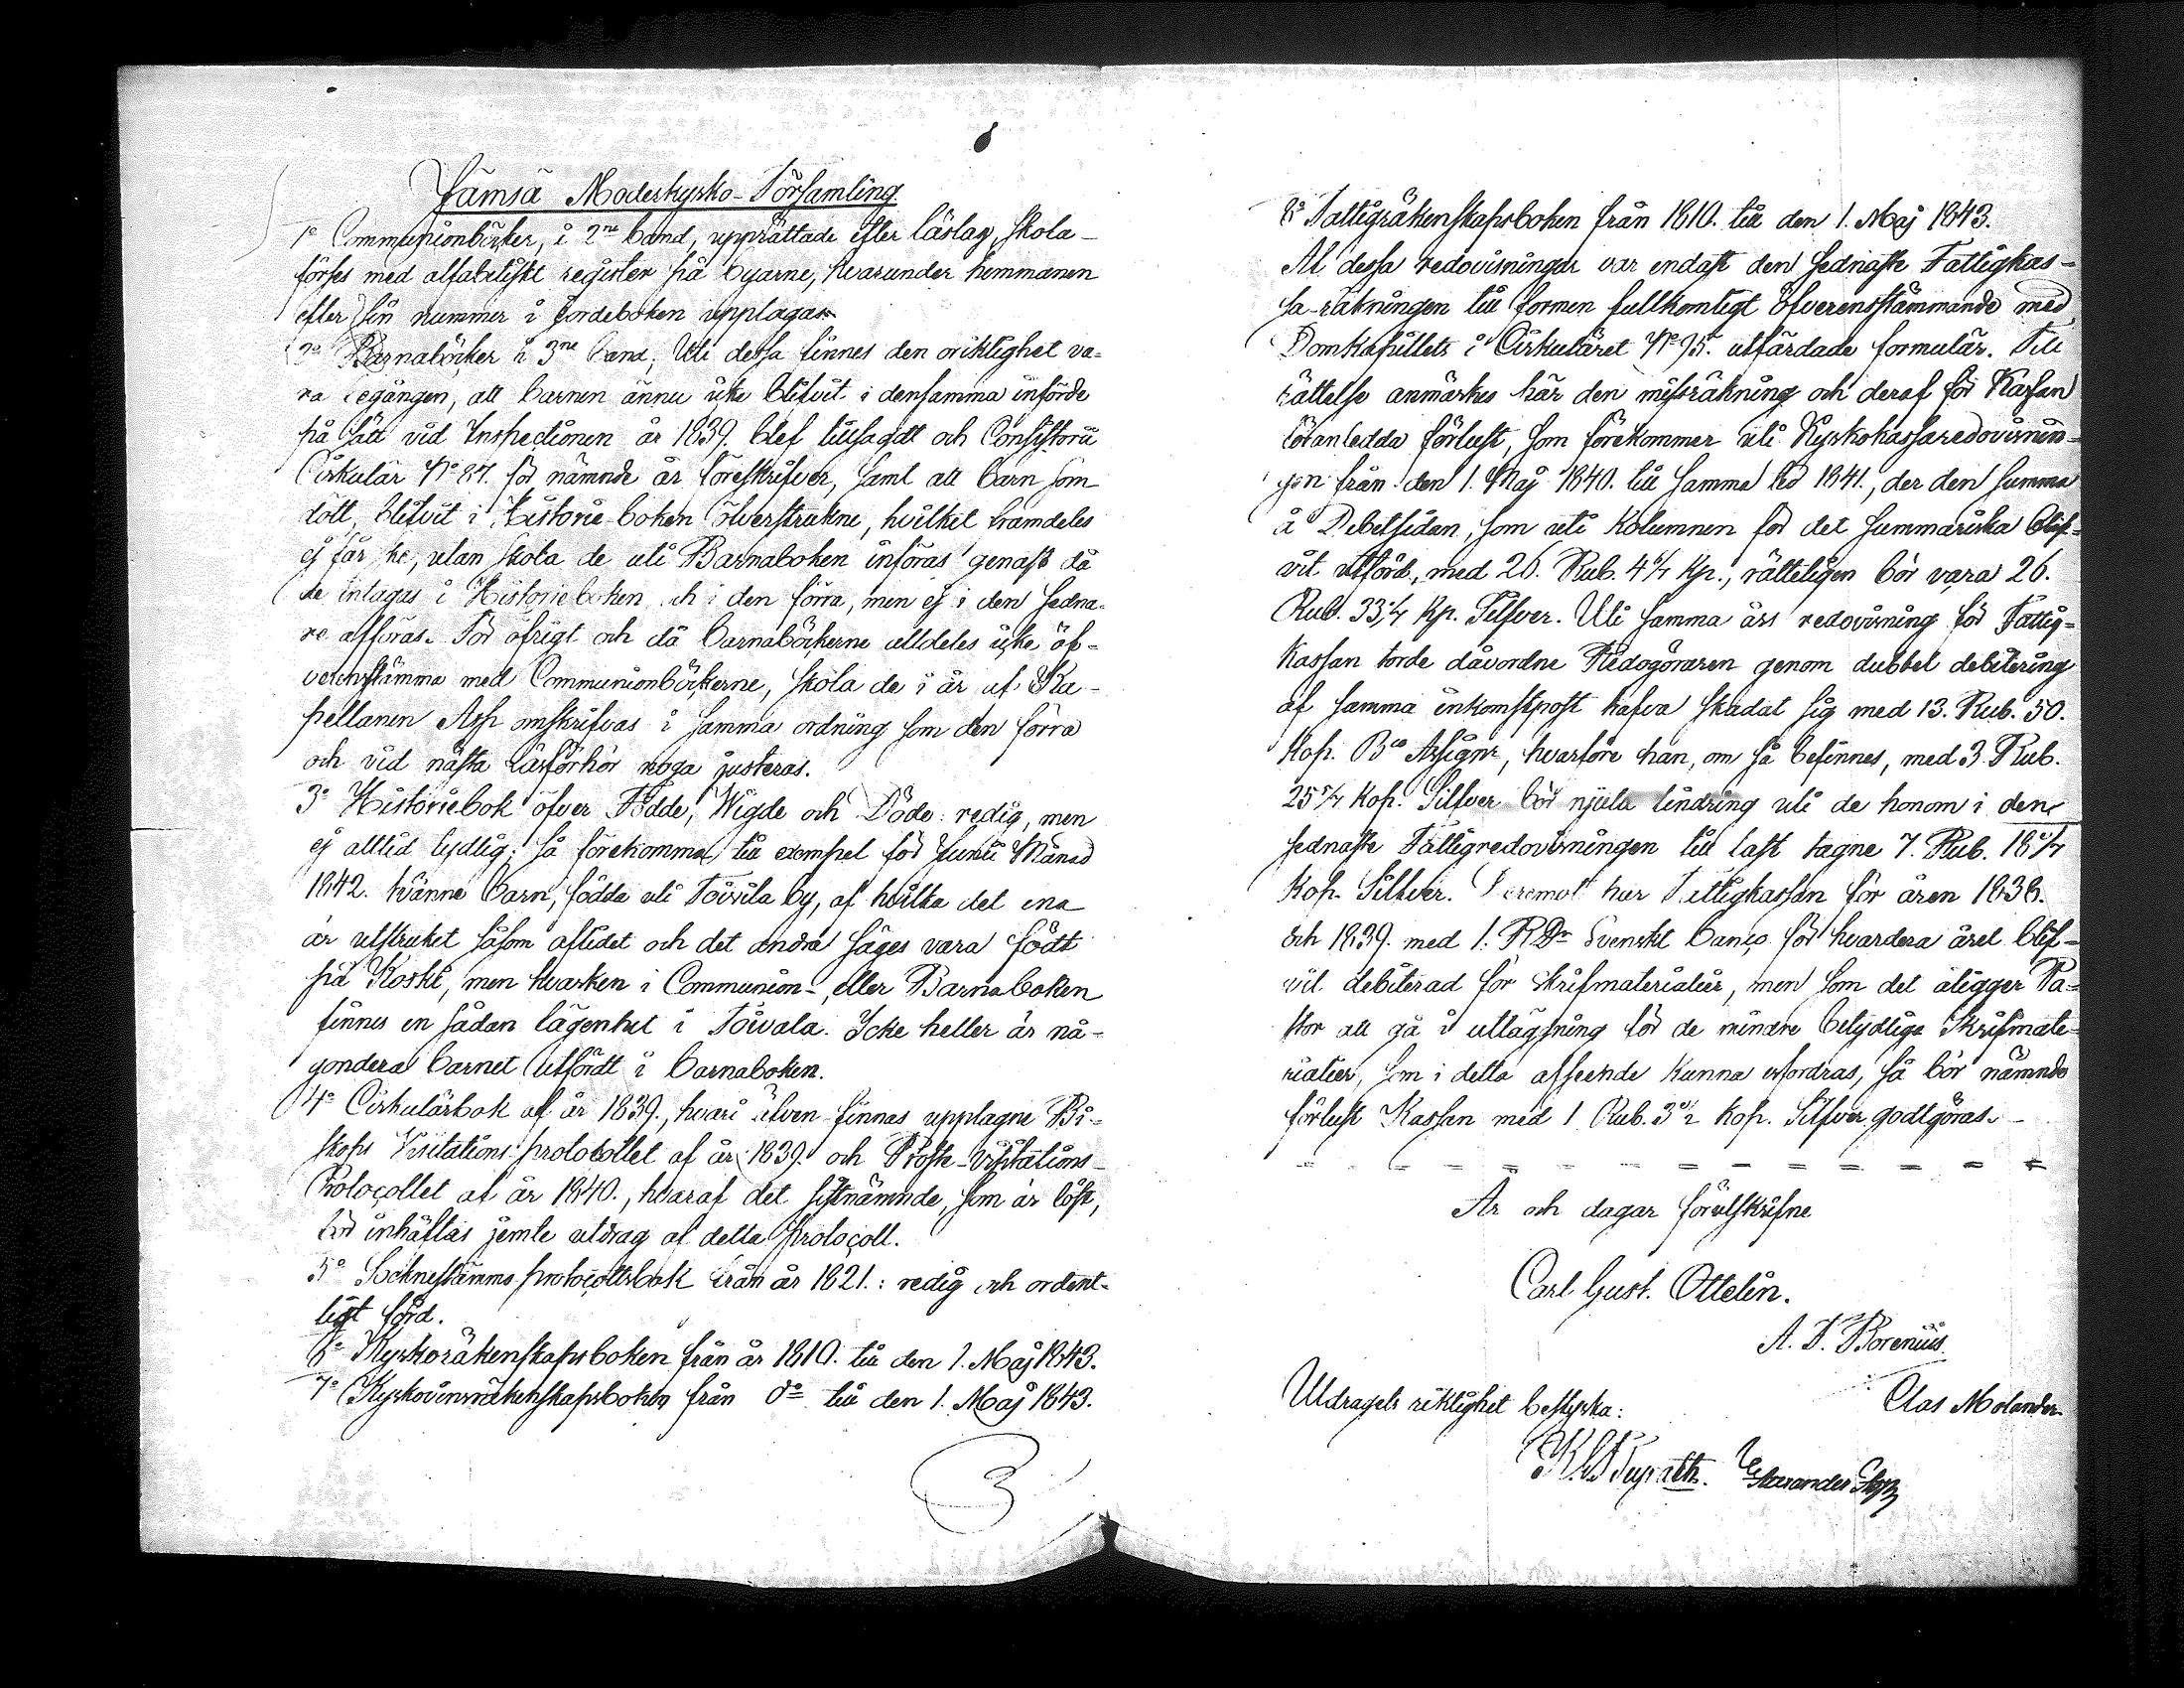 Jämsä Moderkyrko-Församling
1º Communionböcker, i 2ne band, upprättade efter läslag, skola
förses med alfabetiskt register på byarne, hvarunder hemmanen
efter sin nummer i Jordeboken upptagas.
2º Barnaböcker i 3ne band; Uti dessa finnes den oriktighet va-
ra begången, att barnen ännu icke blifvit i densamma införde
på sätt vid Inspectionen år 1839. blef tillsagdt och Consistorii
Cirkulär Nº 87. för nämnde år föreskrifver, samt att barn som
dött, blifvit i Historie-boken öfverstrukne, hvilket framdeles
ej får ske, utan skola de uti Barnaboken införas genast då
de intagas i Historieboken och i den förra, men ej i den sedna-
re afföras. För öfrigt och då barnaböckerne alldeles icke öf-
verensstämma med Communionböckerne, skola de i år af Ka-
pellanen Asp omskrifvas i samma ordning som den förra
och vid nästa läsförhör noga justeras.
3º Historiebok öfver Födde, Wigde och Döde: redig, men
ej alltid tydlig; så förekomma till exempel för Junii Månad
1842. tvänne barn, födda uti Toivila by, af hvilka det ena
är utstruket såsom aflidet och det andra säges vara födt
på Koski, men hvarken i Communion-, eller Barnaboken
finnes en sådan lägenhet i Toivala. Icke heller är nå-
gondera barnet utfördt i barnaboken.
4º Cirkulärbok af år 1839., hvari äfven finnas upptagne Bi-
skops Visitations protocollet af år 1839. och Proste-Visitations-
Protocollet af år 1840., hvaraf det sistnämnde, som är löst,
bör inhäftas jemte utdrag af detta protocoll.
5º Sockenstämms-protocollsbok från år 1821.: redig och ordent-
ligt förd.
6º Kyrkoräkenskapsboken från år 1810. till den 1. Maj 1843.
7º Kyrkovinsräkenskapsboken från dº till den 1. Maj 1843.
8º Fattigräkenskapsboken från 1810. till den 1. Maj 1843.
Af dessa redovisningar var endast den sednaste Fattigkas-
sa-räkningen till formen fullkomligt öfverensstämmande med
Domkapitlets i Cirkuläret Nº 95. utfärdade formulär. Till
rättelse anmärkes här den missräkning och deraf för Kassan
föranledda förlust, som förekommer uti Kyrkokassaredovisnin-
gen från den 1. Maj 1840. till samma tid 1841., der den summa
å Debetsidan, som uti Kolumnen för det summariska blif-
vit utförd, med 26. Rub. 4 4/7 Kp., rätteligen bör vara 26.
Rub. 33 4/7 Kp. Silfver. Uti samma års redovisning för Fattig-
kassan torde dåvordne Redogöraren genom dubbel debitering
af samma inkomstpost hafva skadat sig med 13. Rub. 50.
Kop. Bco Assignr, hvarföre han, om så befinnes, med 3. Rub.
25 5/7 Kop. Silfver bör njuta lindring uti de honom i den
sednaste Fattigredovisningen till last tagne 7. Rub. 18 6/7
Kop. Silfver. Deremot har Fattigkassan för åren 1838.
och 1839. med 1. RDr Svenskt banco för hvardera året blif-
vit debiterad för skrifmaterialier, men som det åligger Pa-
stor att gå i utlägsning för de mindre betydliga skrifmate-
rialier, som i detta afseende kunna erfordras, så bör nämnde
förlust Kassan med 1 Rub. 3 1/2 Kop. Silfver godtgöras.
År och dagar förutskrifne
Carl Gust. Ottelin.
A. F. Borenius.
Clas Molander
Utdragets riktighet bestyrka:
Alexander Asp